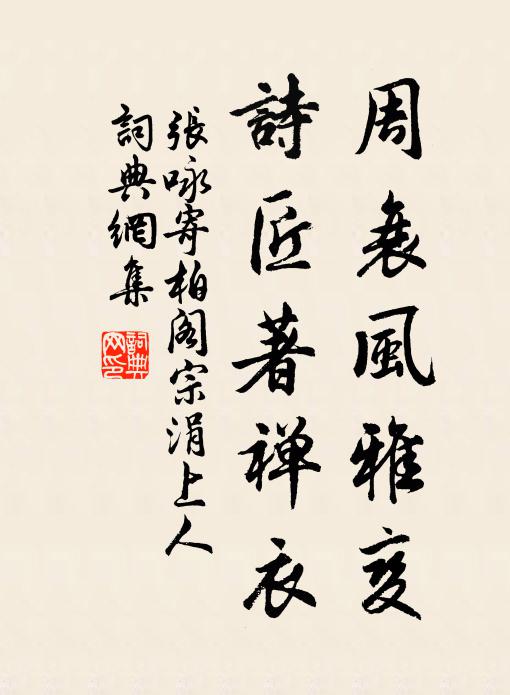 周衰風雅变
詩匠著禅衣
張咏寄柏阁宗涓上人
詞典網集
詞典
网印